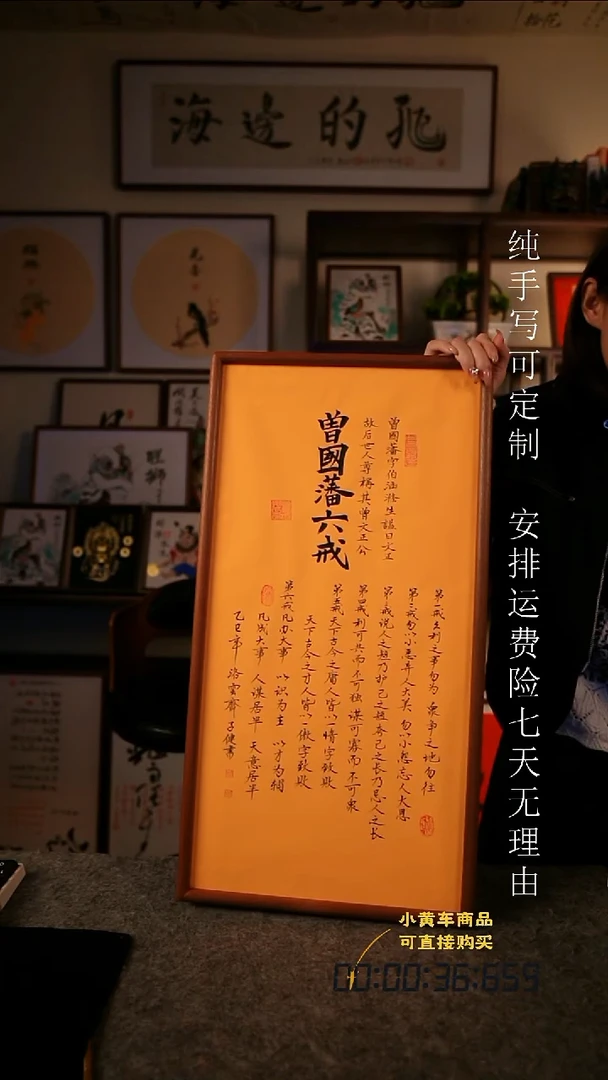 海邊的
纯手写可定制 安排运费险七天无理由
曾國藩字伯涵滌生諡曰文正
故后世人尊稱其曾文正公
曾國藩六戒
第一戒久利之事勿为 衆争之地勿往
第二戒勿以小恶弃人大美 勿以小怨忘人大恩
第三戒说人之短乃护己之短 夸己之长乃忌人之长
第四戒利可共而不可独 谋可寡而不可衆
第五戒天下古今之庸人皆以一惰字致敗
天下古今之才人皆以一傲字致敗
第六戒凡办大事 以识为主 以才为辅
凡成大事 人谋居半 天意居半
乙巳年 洛雲齋 子健書
小黄车商品
可直接购买
00:00:36:659